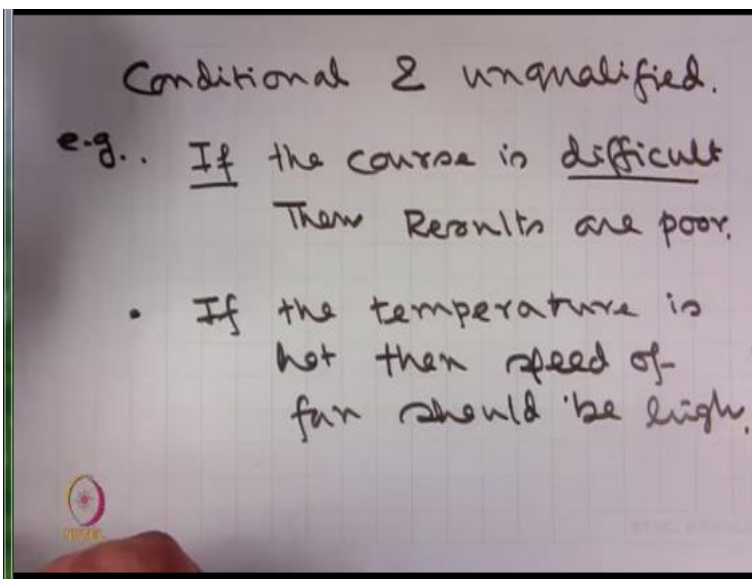 Conditional & unqualified.
e.g.. If the course is difficult
Then Results are poor.
• If the temperature is
hot then speed of
fan should be high.
NPTEL